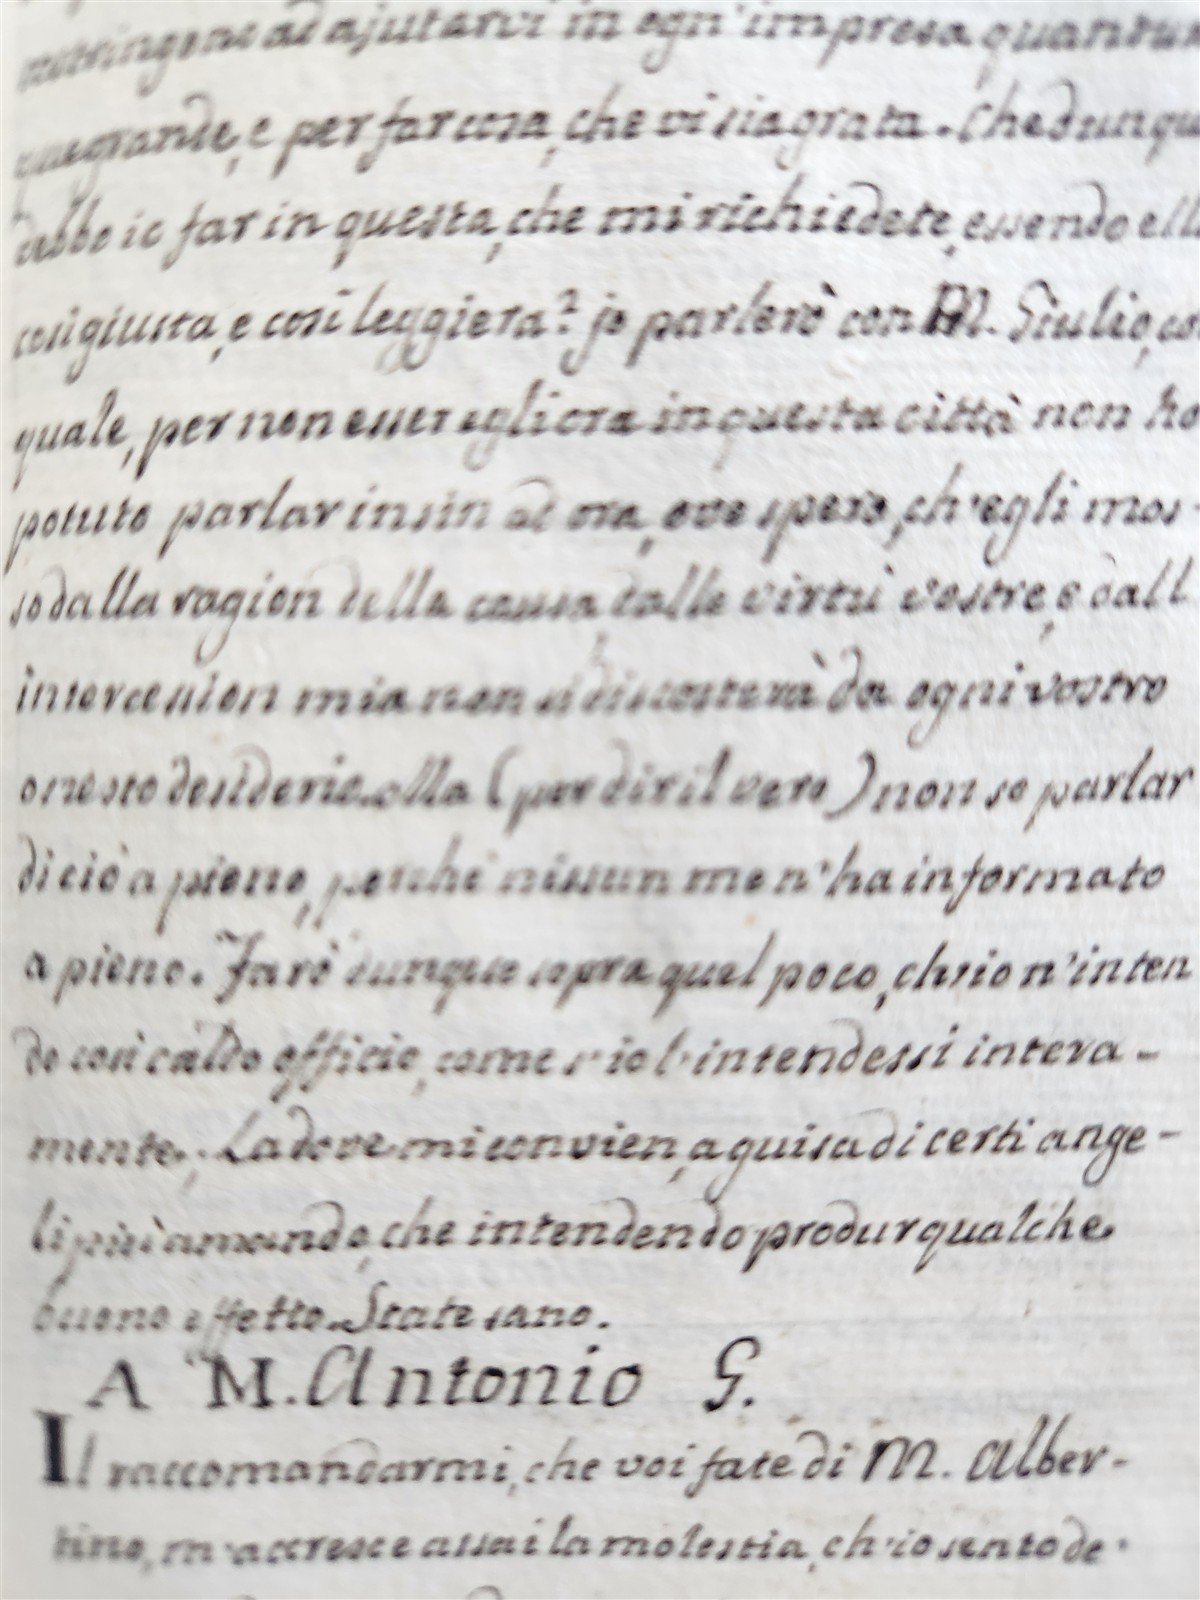 ad ajutarvi in ogn'impresa quantun
que grande, e per far cosa, che vi sia grata. Che dunqu
debbo io far in questa, che mi richiedete, essendo ella
così giusta, e così leggiera? jo parlerò con M. Giulio, col
quale, per non esser egli ora in questa città non ho
potuto parlar insin ad ora, ove spero, ch'egli mos-
so dalla ragion della causa, dalle virtù vostre, e dall
intercession mia non si discosterà da ogni vostro
onesto desiderio. Ma (per dir il vero) non so parlar
di ciò a pieno, perchè nissun me n'ha informato
a pieno. Farò dunque sopra quel poco, ch'io n'inten
do così caldo officio, come s'io l'intendessi intera-
mente. Ladove mi convien, a guisa di certi ange-
li, più amando, che intendendo produr qualche
buono effetto. State sano.
A M. Antonio G.
Il raccomandarmi, che voi fate di M. Alber-
tino, m'accresce assai la molestia, ch'io sento de'